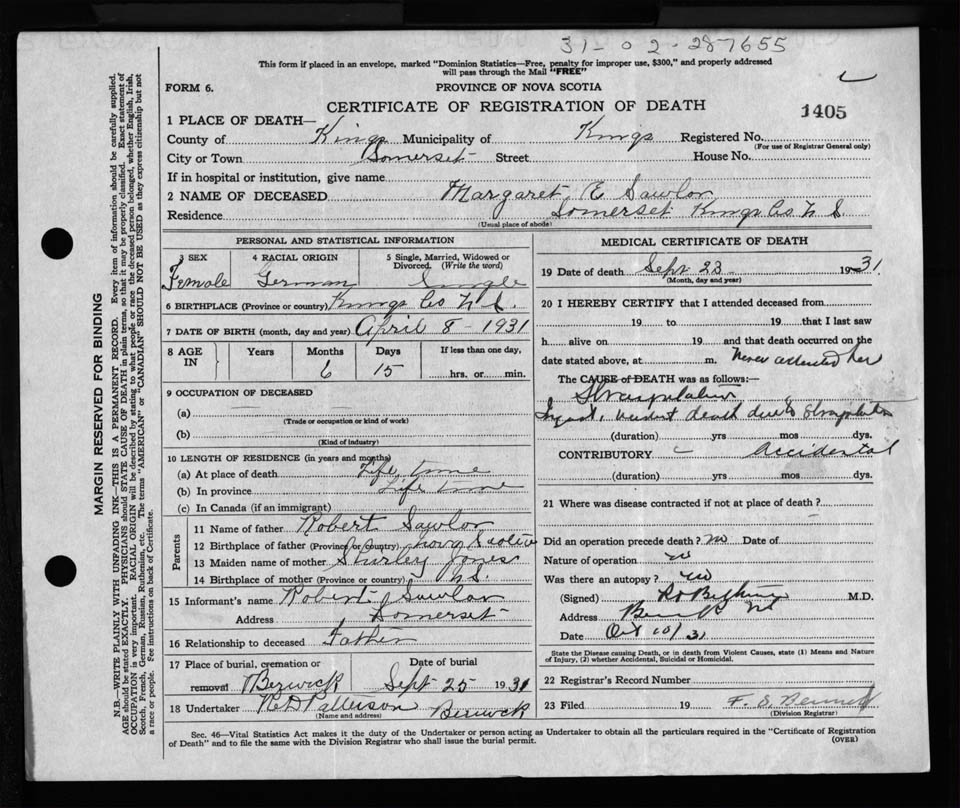 31-02-287655
This form if placed in an envelope, marked "Dominion Statistics—Free, penalty for improper use, $300," and properly addressed
will pass through the Mail "FREE"
FORM 6.
PROVINCE OF NOVA SCOTIA
CERTIFICATE OF REGISTRATION OF DEATH
1405
1 PLACE OF DEATH—
County of Kings Municipality of Kings Registered No.
(For use of Registrar General only)
City or Town Somerset Street House No.
If in hospital or institution, give name
2 NAME OF DECEASED Margaret E Sawlor
Residence Somerset Kings Co N.S.
(Usual place of abode)
PERSONAL AND STATISTICAL INFORMATION
3 SEX 4 RACIAL ORIGIN 5 Single, Married, Widowed or Divorced. (Write the word)
Female German Single
6 BIRTHPLACE (Province or country) Kings Co N.S.
7 DATE OF BIRTH (month, day and year) April 8 - 1931
8 AGE IN Years Months Days If less than one day,
6 15 hrs. or min.
9 OCCUPATION OF DECEASED
(a)
(Trade or occupation or kind of work)
(b)
(Kind of industry)
10 LENGTH OF RESIDENCE (in years and months)
(a) At place of death Life time
(b) In province Life time
(c) In Canada (if an immigrant)
Parents
11 Name of father Robert Sawlor
12 Birthplace of father (Province or country) Nova Scotia
13 Maiden name of mother Shirley Jones
14 Birthplace of mother (Province or country) N.S.
15 Informant's name Robert Sawlor
Address Somerset
16 Relationship to deceased Father
17 Place of burial, cremation or removal Berwick
Date of burial Sept 25 1931
18 Undertaker Patterson Berwick
(Name and address)
MEDICAL CERTIFICATE OF DEATH
19 Date of death Sept 23 1931
(Month, day and year)
20 I HEREBY CERTIFY that I attended deceased from
19 to 19 that I last saw
h alive on 19 and that death occurred on the
date stated above, at m. Never attended her
The CAUSE of DEATH was as follows:—
Strangulation
death due to Strangulation
(duration) yrs mos dys.
CONTRIBUTORY Accidental
(duration) yrs mos. dys.
21 Where was disease contracted if not at place of death?
Did an operation precede death? no Date of
Nature of operation no
Was there an autopsy? no
(Signed) M.D.
Address Berwick NS
Date Oct 10/31
State the Disease causing Death, or in death from Violent Causes, state (1) Means and Nature
of Injury, (2) whether Accidental, Suicidal or Homicidal.
22 Registrar's Record Number
23 Filed 19 F. S. Bennett
(Division Registrar)
Sec. 46—Vital Statistics Act makes it the duty of the Undertaker or person acting as Undertaker to obtain all the particulars required in the "Certificate of Registration
of Death" and to file the same with the Division Registrar who shall issue the burial permit.
(OVER)
MARGIN RESERVED FOR BINDING
N.B.—WRITE PLAINLY WITH UNFADING INK—THIS IS A PERMANENT RECORD. Every item of information should be carefully supplied.
AGE should be stated EXACTLY. PHYSICIANS should STATE CAUSE OF DEATH in plain terms, so that it may be properly classified. Exact statement of
OCCUPATION is very important. RACIAL ORIGIN will be described by stating to what people or race the deceased person belonged, whether English, Irish,
Scotch, French, German, Russian, Ruthenian, etc. The terms "AMERICAN" or "CANADIAN" SHOULD NOT BE USED as they express citizenship but not
a race or people. See instructions on back of Certificate.